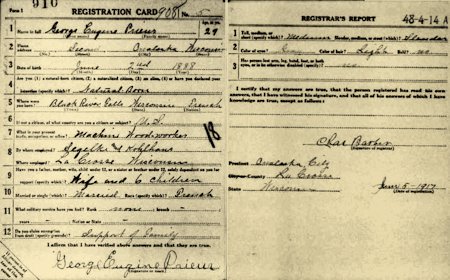 Form 1
910
REGISTRATION CARD
No. 5
1 Name in full George Eugene Prieur Age, in yrs. 29
2 Home address Onalaska Wisconsin
3 Date of birth June 2nd 1888
4 Are you (1) a natural-born citizen, (2) a naturalized citizen, (3) an alien, (4) or have you declared your intention (specify which)? Natural Born
5 Where were you born? Black River Falls Wisconsin
6 If not a citizen, of what country are you a citizen or subject?
7 What is your present trade, occupation, or office? Machine Woodworker
18
8 By whom employed? Segelke & Kohlhaus
Where employed? La Crosse Wisconsin
9 Have you a father, mother, wife, child under 12, or a sister or brother under 12, solely dependent on you for support (specify which)? Wife and 6 children
10 Married or single (which)? Married Race (specify which)? French
11 What military service have you had? Rank none branch
years Nation or State
12 Do you claim exemption from draft (specify grounds)? Support of Family
I affirm that I have verified above answers and that they are true.
George Eugene Prieur
REGISTRAR'S REPORT
48-4-14 A
1 Tall, medium, or short (specify which)? Medium Slender, medium, or stout (which)? Slender
2 Color of eyes? Gray Color of hair? Light Bald? no
3 Has person lost arm, leg, hand, foot, or both eyes, or is he otherwise disabled no
I certify that my answers are true, that the person registered has read his own answers, that I have witnessed his signature, and that all of his answers of which I have knowledge are true, except as follows:
Chas Barber
(Signature of registrar)
Precinct Onalaska City
City or County La Crosse
State Wisconsin
June 5-1917
(Date of registration)